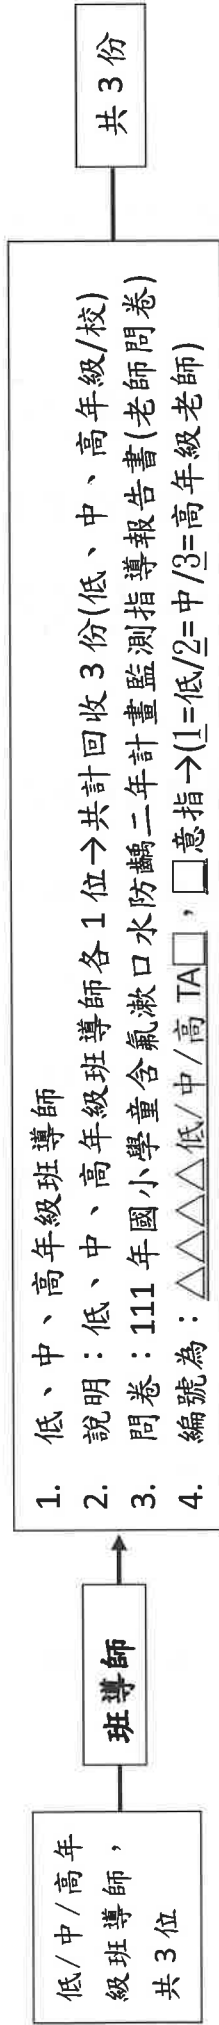 低/中/高年
級班導師，
共 3 位
班導師
1. 低、中、高年級班導師
2. 說明：低、中、高年級班導師各 1 位→共計回收 3 份(低、中、高年級/校)
3. 問卷：111 年國小學童含氟漱口水防齲二年計畫監測指導報告書(老師問卷)
4. 編號為：△△△△△低/中/高 TA□，□意指→(1=低/2=中/3=高年級老師)
共 3 份